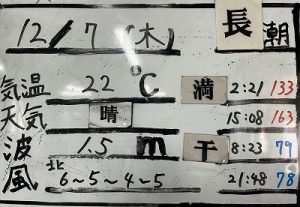 12/7(木) 長潮
気温 22℃ 満 2:21 133
天気 晴 15:08 163
波 1.5m 干 8:23 79
風 北 6~5~4~5 21:48 78